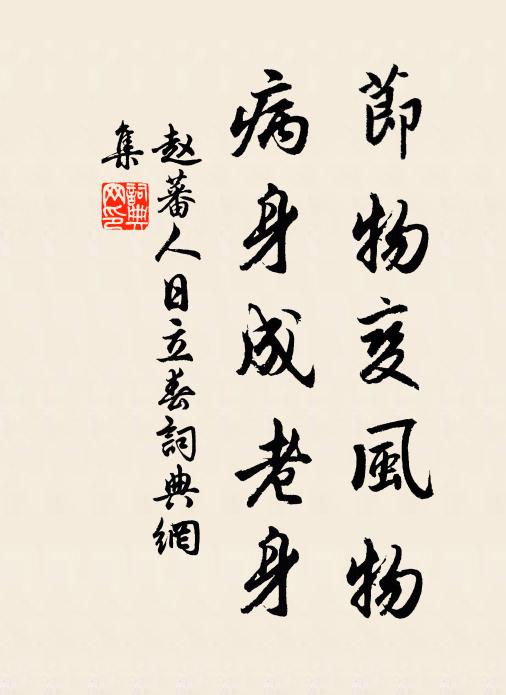 節物变風物
病身成老身
赵蕃人日立春詞典網
集
詞典網印